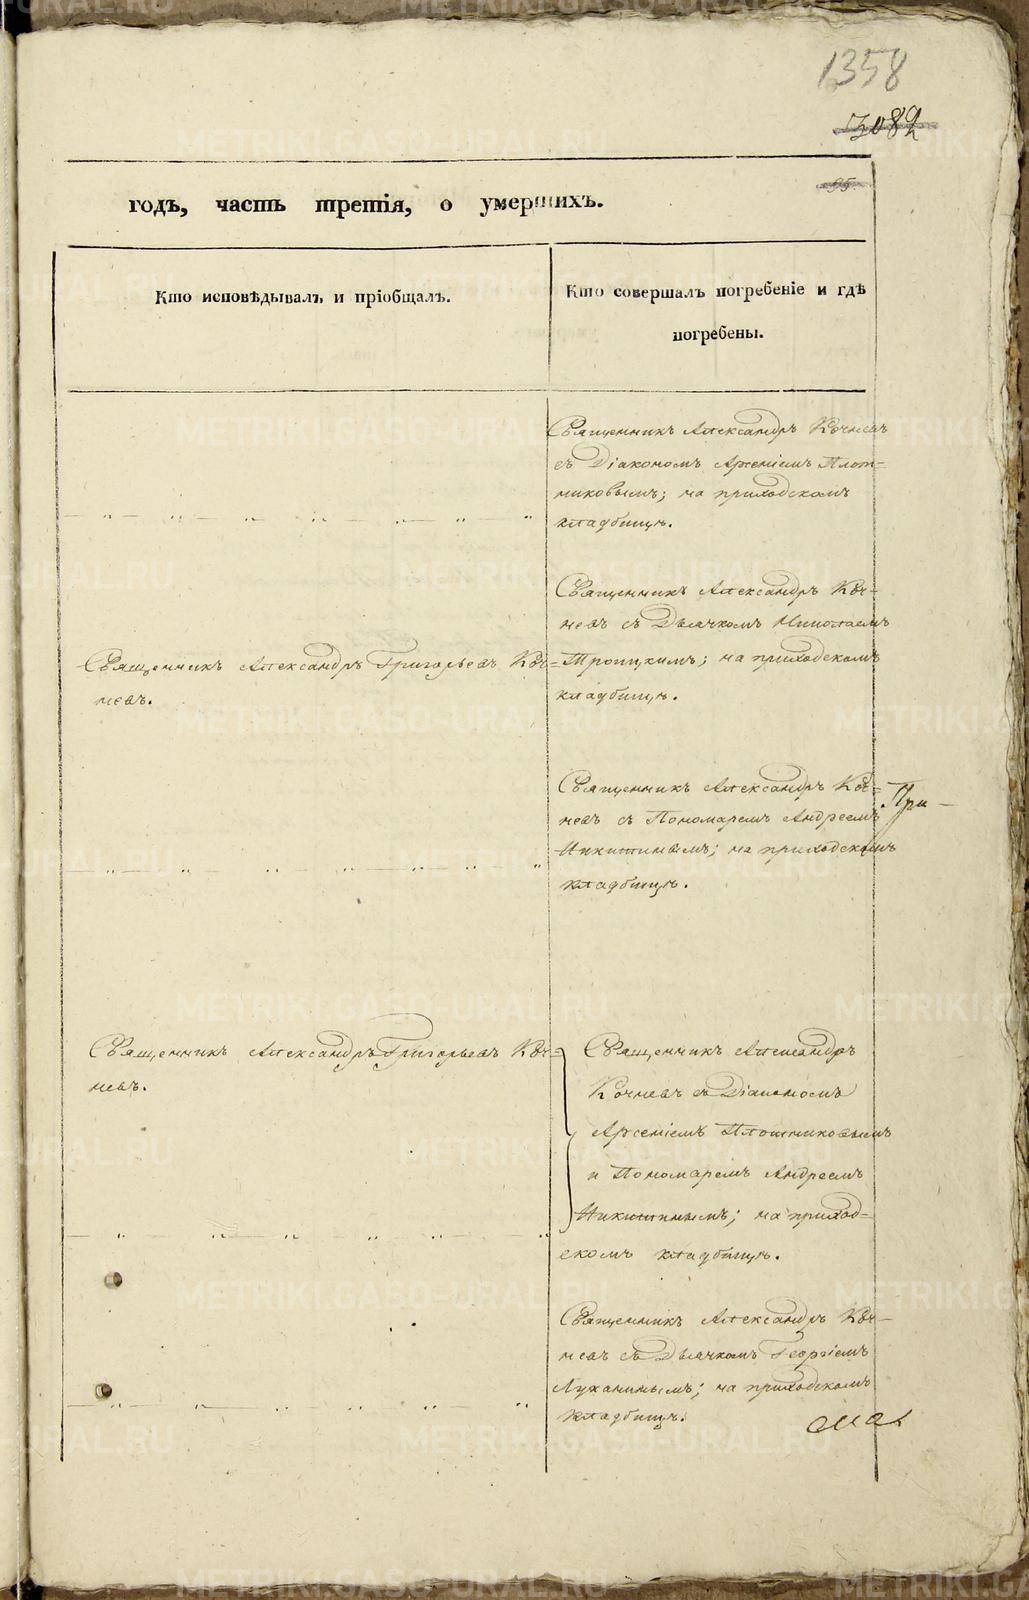 1358
3082
95.
годъ, часть третія, о умершихъ.
Кто исповѣдывалъ и пріобщалъ.
Кто совершалъ погребеніе и гдѣ
погребены.
Священникъ Александръ Кочневъ
съ Діакономъ Арсеніемъ Плот-
никовымъ; на приходскомъ
кладбищѣ.
Священникъ Александръ Григорьевъ Коч=
невъ.
Священникъ Александръ Коч-
невъ съ Дьячкомъ Николаемъ
Троицкимъ; на приходскомъ
кладбищѣ.
Священникъ Александръ Коч=
невъ съ Пономаремъ Андреемъ
Никитинымъ; на приходскомъ
кладбищѣ.
При-
Священникъ Александръ Григорьевъ Коч=
невъ.
Священникъ Александръ
Кочневъ съ Діакономъ
Арсеніемъ Плотниковымъ
и Пономаремъ Андреемъ
Никитинымъ; на приход=
скомъ кладбищѣ.
Священникъ Александръ Коч-
невъ съ Дьячкомъ Георгіемъ
Луканинымъ; на приходскомъ
кладбищѣ.
METRIKI.GASO-URAL.RU